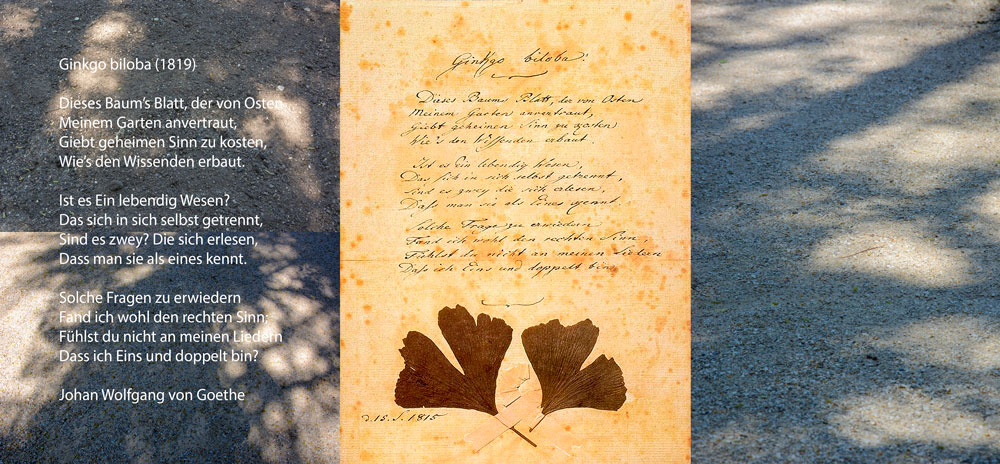 Ginkgo biloba (1819)
Dieses Baum's Blatt, der von Osten
Meinem Garten anvertraut,
Giebt geheimen Sinn zu kosten,
Wie's den Wissenden erbaut.
Ist es Ein lebendig Wesen?
Das sich in sich selbst getrennt,
Sind es zwey? Die sich erlesen,
Dass man sie als eines kennt.
Solche Fragen zu erwiedern
Fand ich wohl den rechten Sinn;
Fühlst du nicht an meinen Liedern
Dass ich Eins und doppelt bin?
Johan Wolfgang von Goethe
Ginkgo biloba.
Dieses Baums Blatt, der von Osten
Meinem Garten anvertraut,
Giebt geheimen Sinn zu kosten
Wie's den Wissenden erbaut.
Ist es Ein lebendig Wesen
Das sich in sich selbst getrennt,
Sind es zwey die sich erlesen,
Daß man sie als Eines kennt.
Solche Frage zu erwiedern
Fand ich wohl den rechten Sinn,
Fühlst du nicht an meinen Liedern
Daß ich Eins und doppelt bin
d. 15. S. 1815